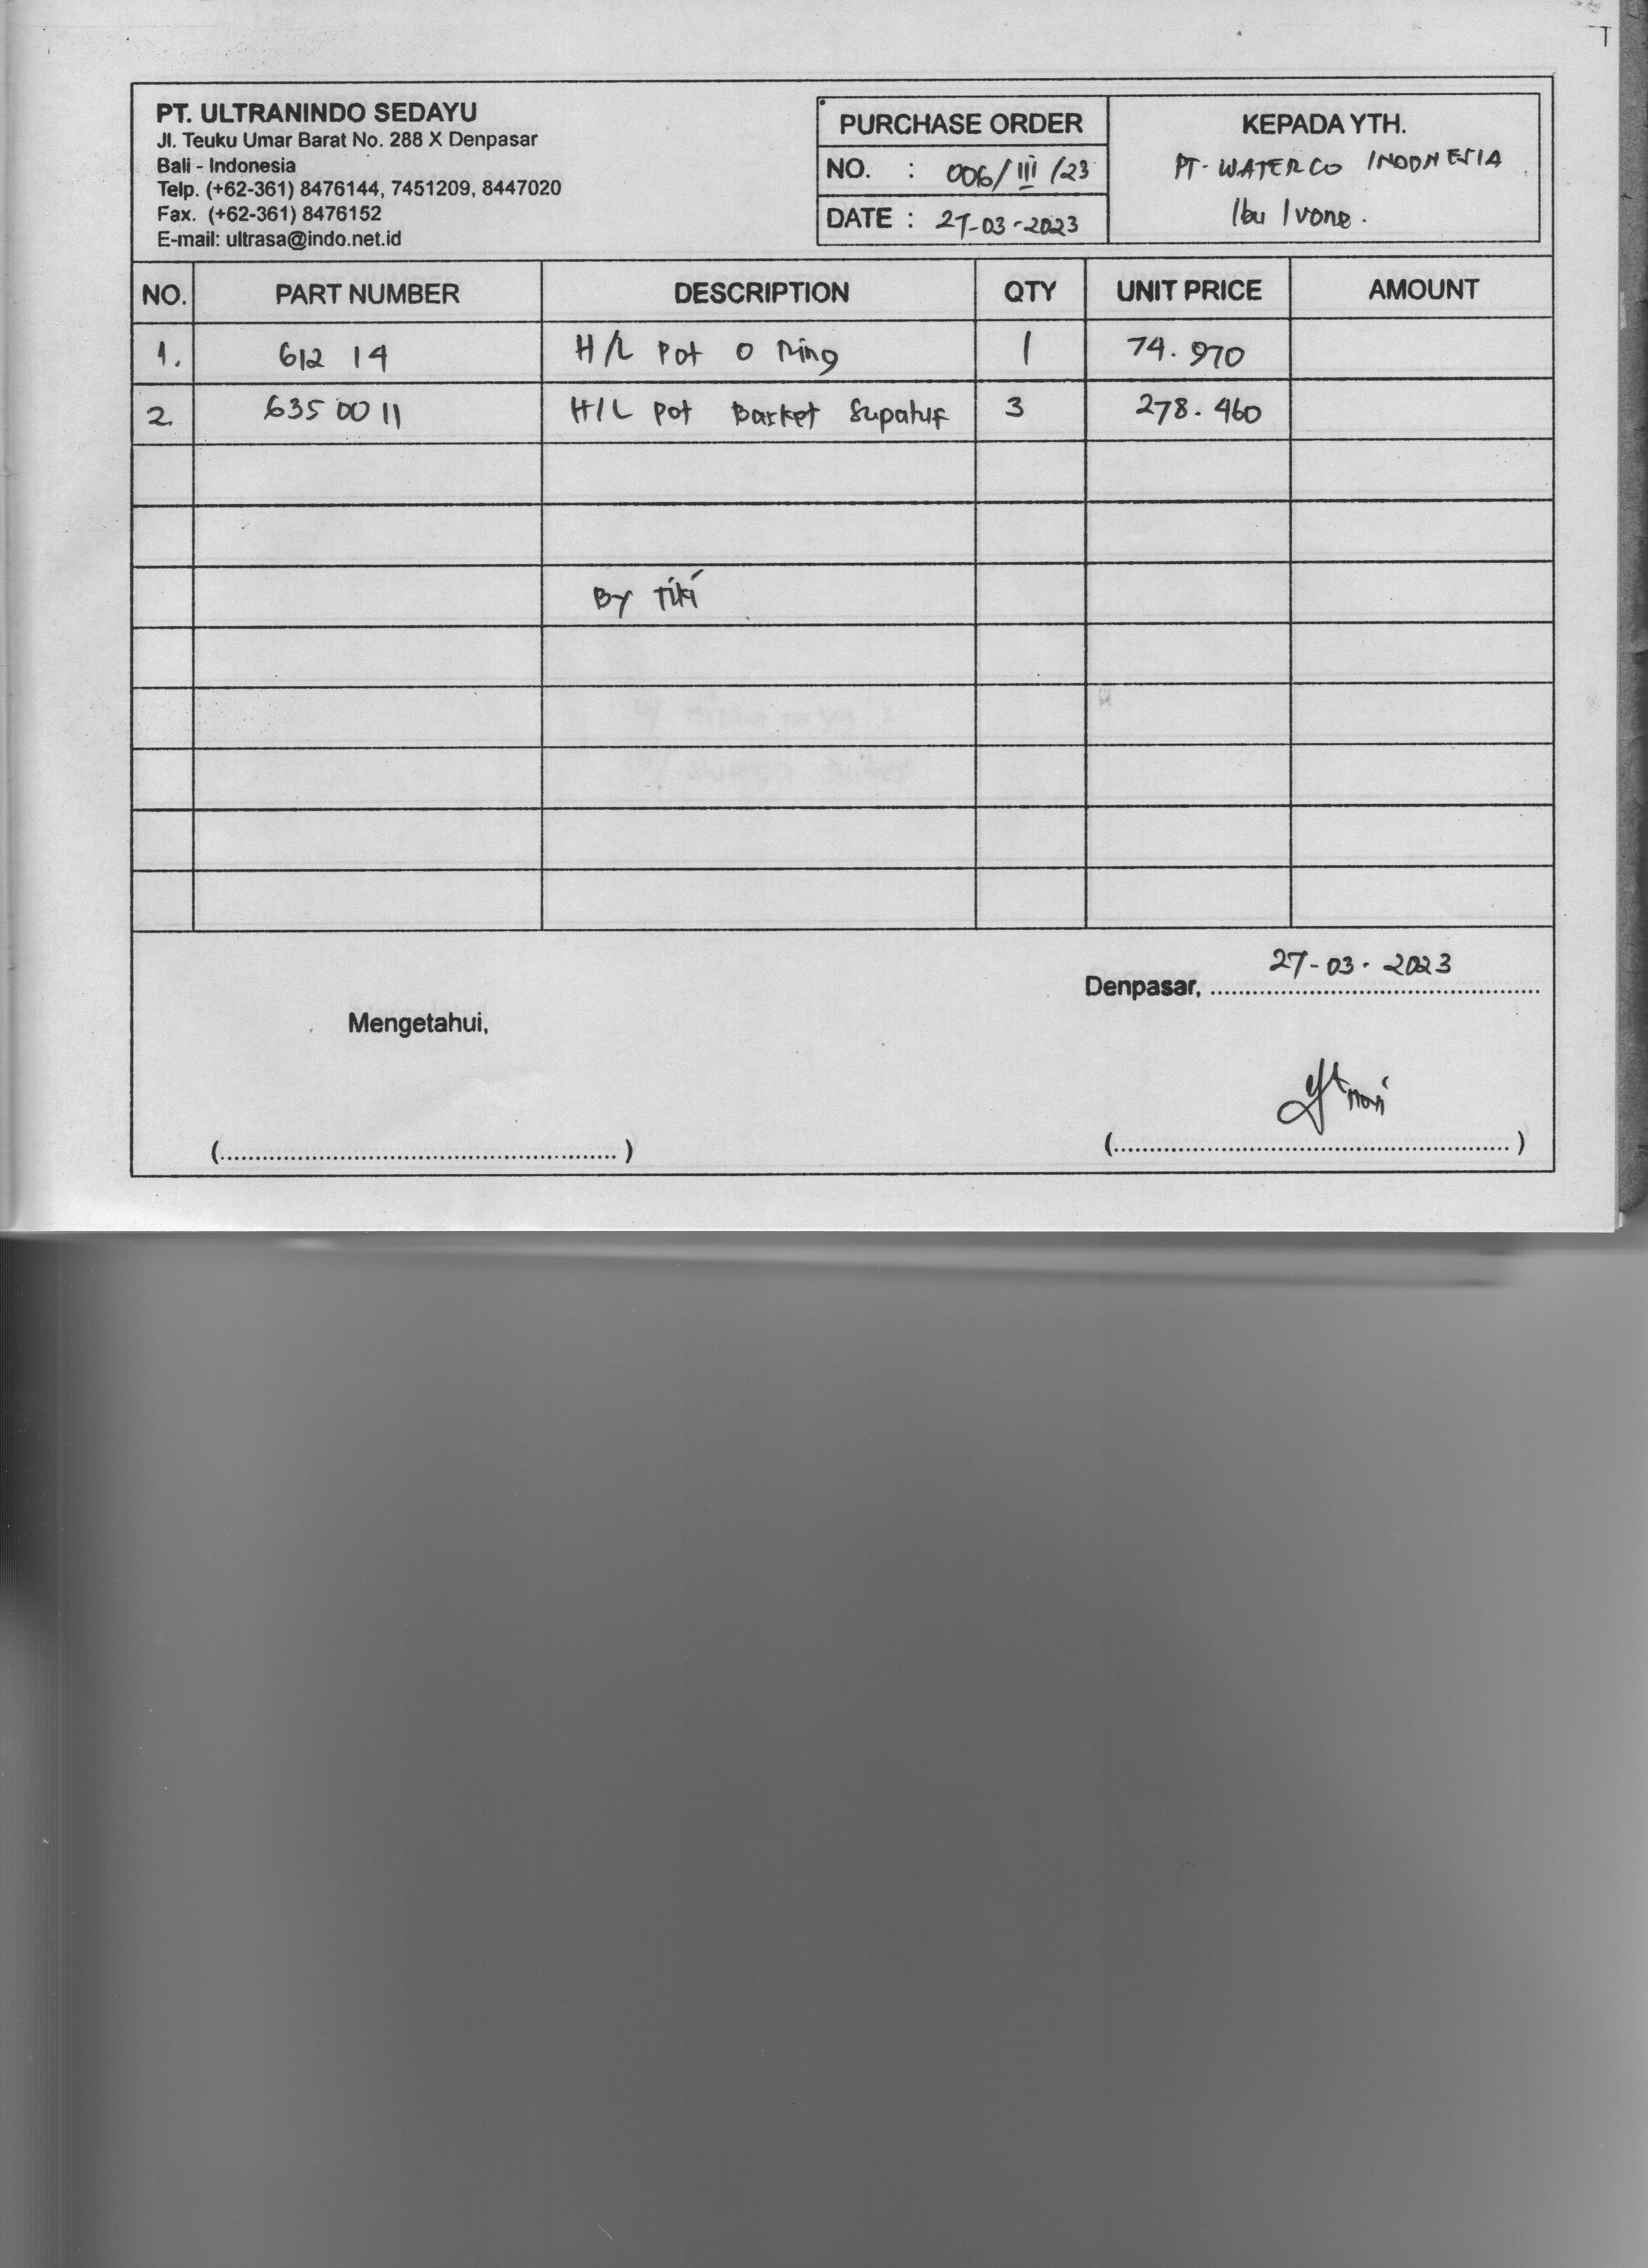 PT. ULTRANINDO SEDAYU
Jl. Teuku Umar Barat No. 288 X Denpasar
Bali - Indonesia
Telp. (+62-361) 8476144, 7451209, 8447020
Fax. (+62-361) 8476152
E-mail: ultrasa@indo.net.id
PURCHASE ORDER
NO. : 006/III/23
DATE : 27-03-2023
KEPADA YTH.
PT. WATERCO INDONESIA
Ibu Ivone.
NO. PART NUMBER DESCRIPTION QTY UNIT PRICE AMOUNT
1. 612 14 H/L Pot O Ring 1 74.970
2. 635 00 11 H/L Pot Basket Supatuf 3 278.460
By Tiki
Denpasar, 27-03-2023
Mengetahui,